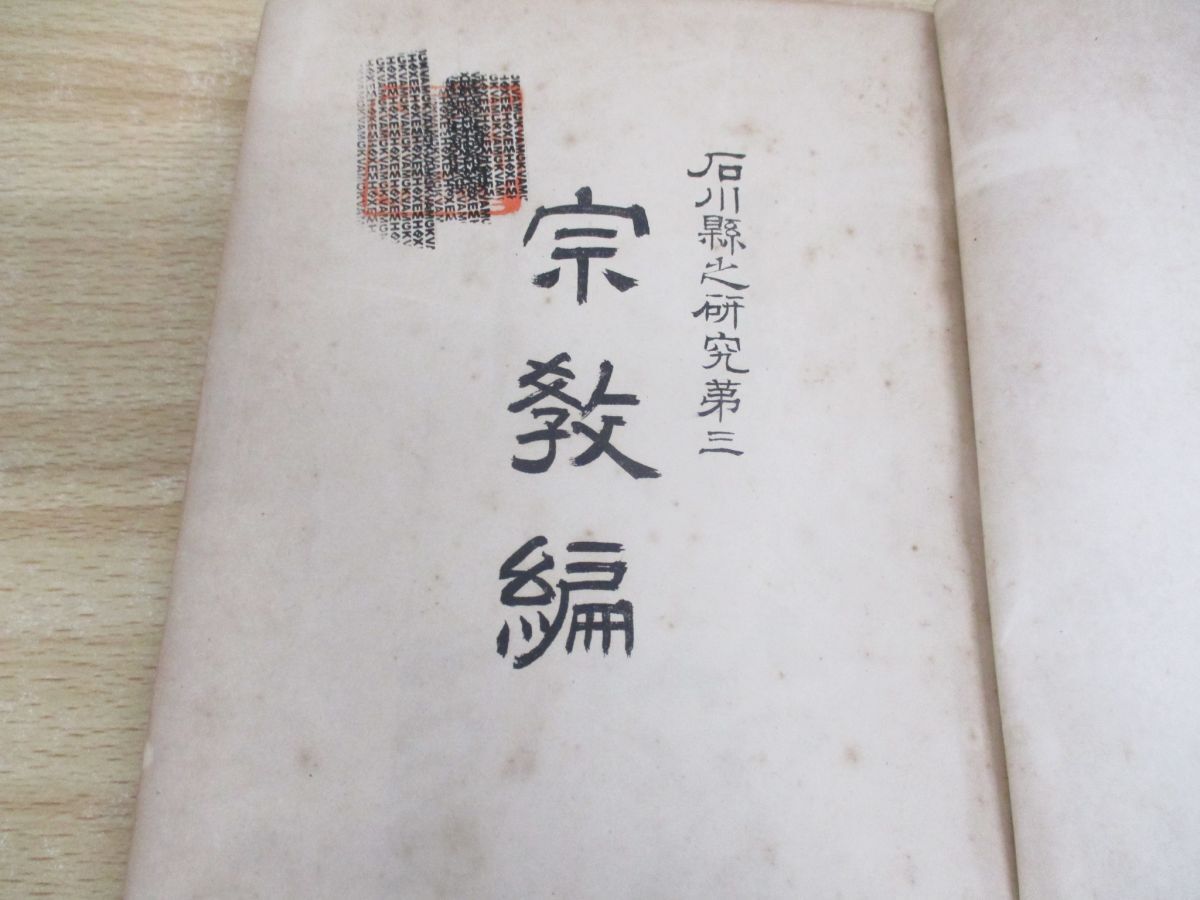 石川縣之硏究第三
宗敎編